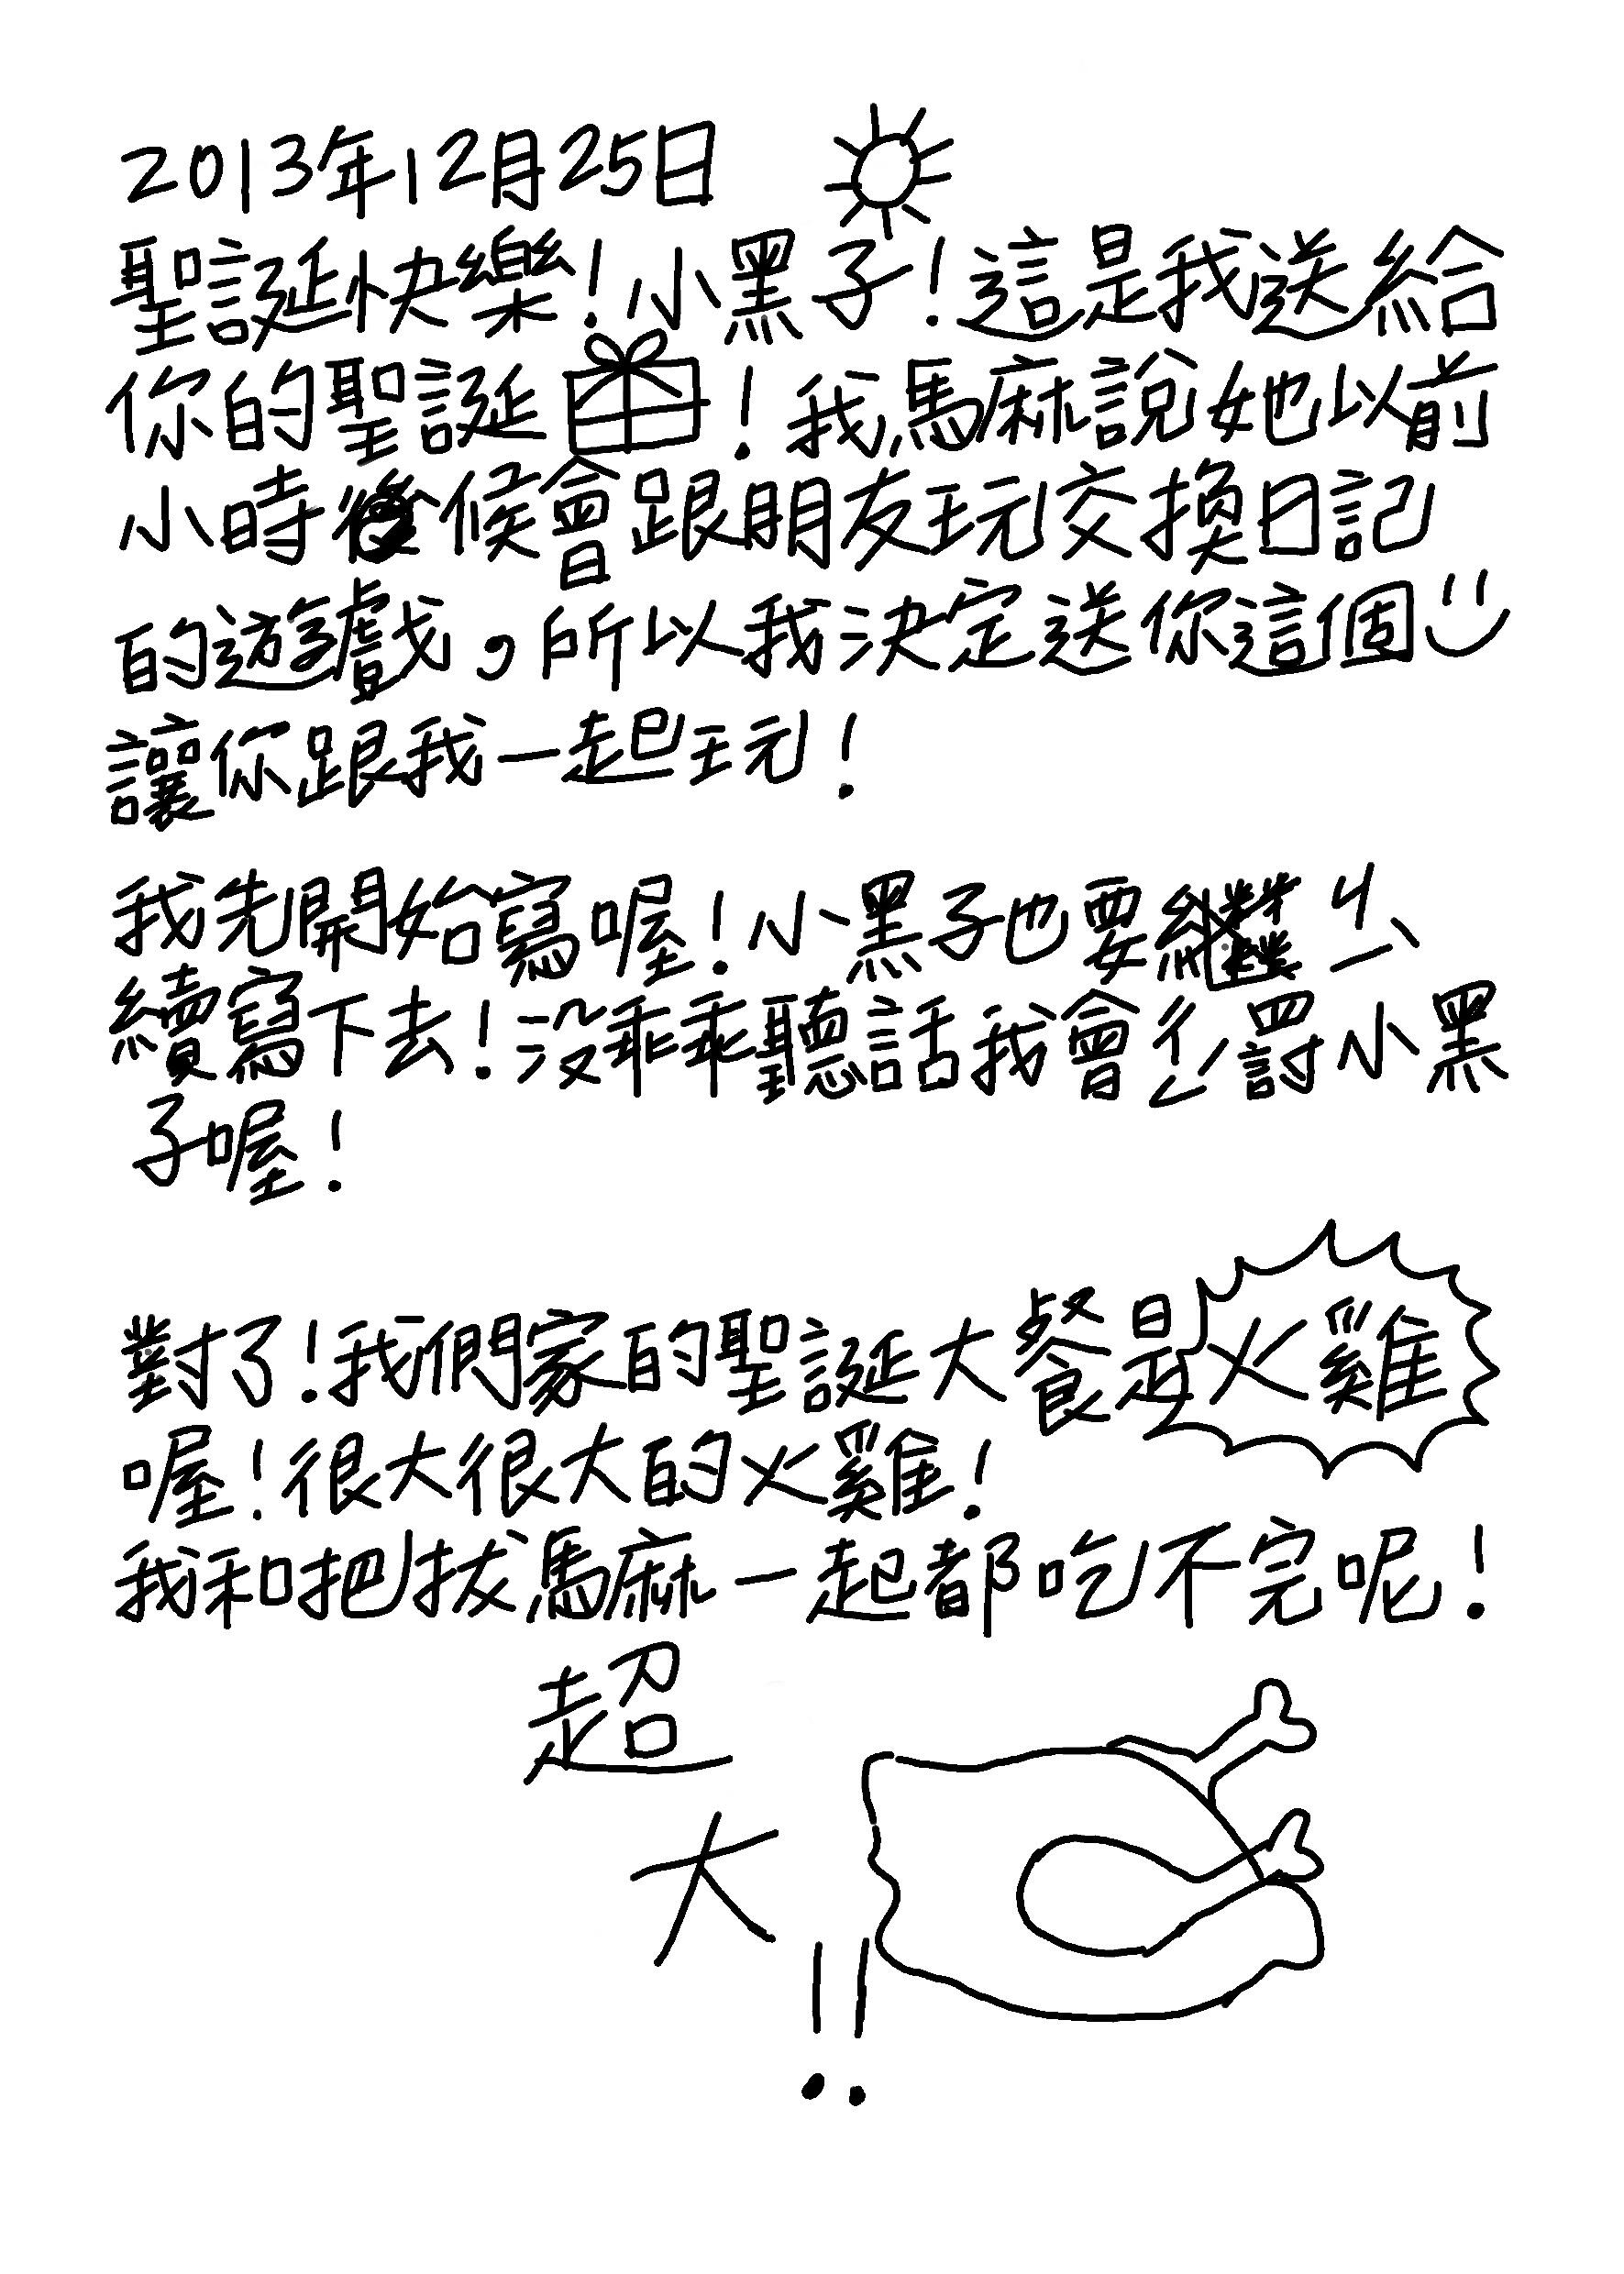 2013年12月25日
聖誕快樂!小黑子!這是我送給
你的聖誕!我馬麻說她以前
小時候會跟朋友玩交換日記
的遊戲,所以我決定送你這個
讓你跟我一起玩!
我先開始寫喔!小黑子也要ㄐㄧˋ
續寫下去!沒乖乖聽話我會ㄔㄥˊ罰小黑
子喔!
對了!我們家的聖誕大餐是火雞
喔!很大很大的火雞!
我和把拔馬麻一起都吃不完呢!
超
大
!!